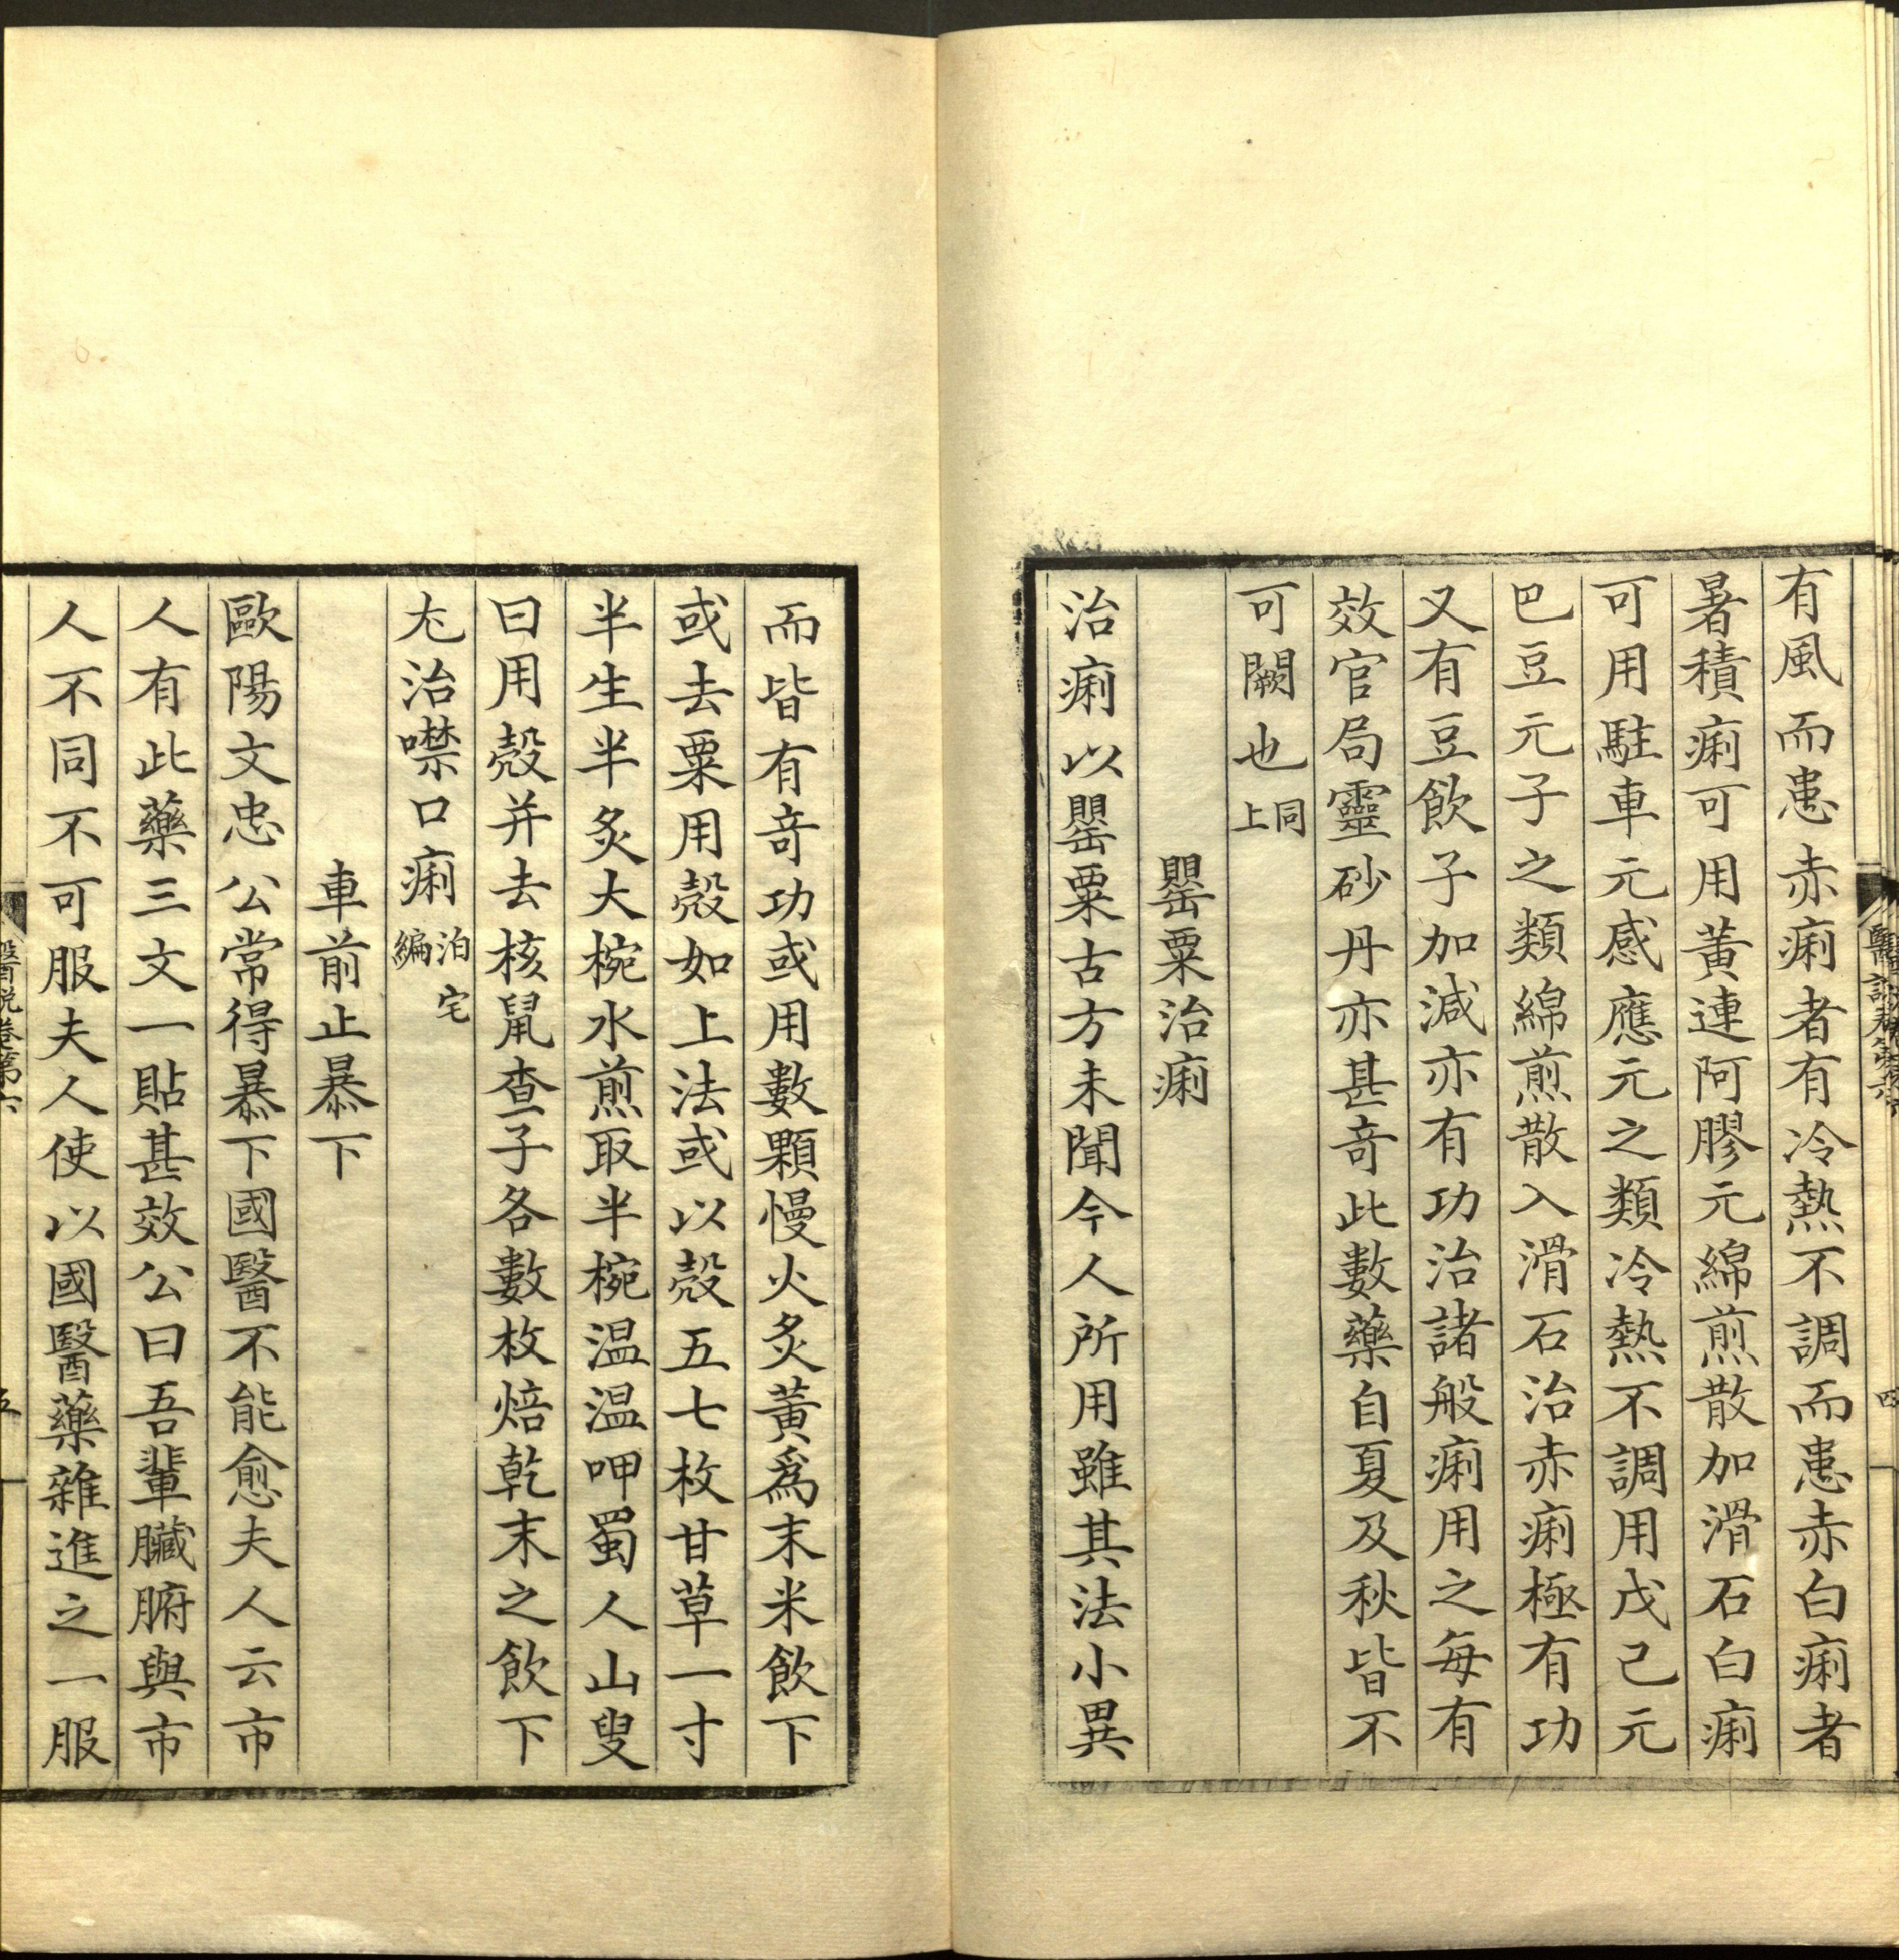 有風而患赤痢者有冷熱不調而患赤白痢者
暑積痢可用黃連阿膠元綿煎散加滑石白痢
可用駐車元感應元之類冷熱不調用戊己元
巴豆元子之類綿煎散入滑石治赤痢極有功
又有豆飲子加減亦有功治諸般痢用之每有
效官局靈砂丹亦甚竒此數藥自夏及秋皆不
可闕也同上
罌粟治痢
治痢以罌粟古方未聞今人所用雖其法小異
醫說卷第六
四
而皆有竒功或用數顆慢火炙黃為末米飲下
或去粟用殼如上法或以殼五七枚甘草一寸
半生半炙大椀水煎取半椀温温呷蜀人山叟
曰用殼并去核鼠查子各數枚焙乾末之飲下
尤治噤口痢泊宅編
車前止暴下
歐陽文忠公常得暴下國醫不能愈夫人云市
人有此藥三文一貼甚效公曰吾輩臟腑與市
人不同不可服夫人使以國醫藥雜進之一服
醫説卷第六
五